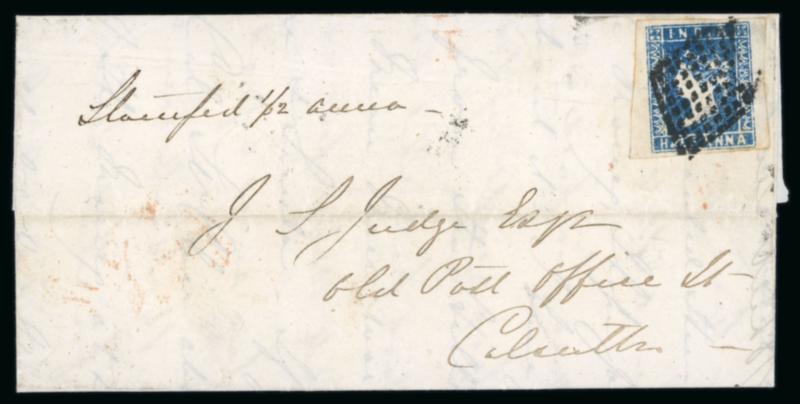 INDIA
HALF ANNA
Stamped 1/2 anna -
J S Judge Esqr
Old Post Office St -
Calcutta -